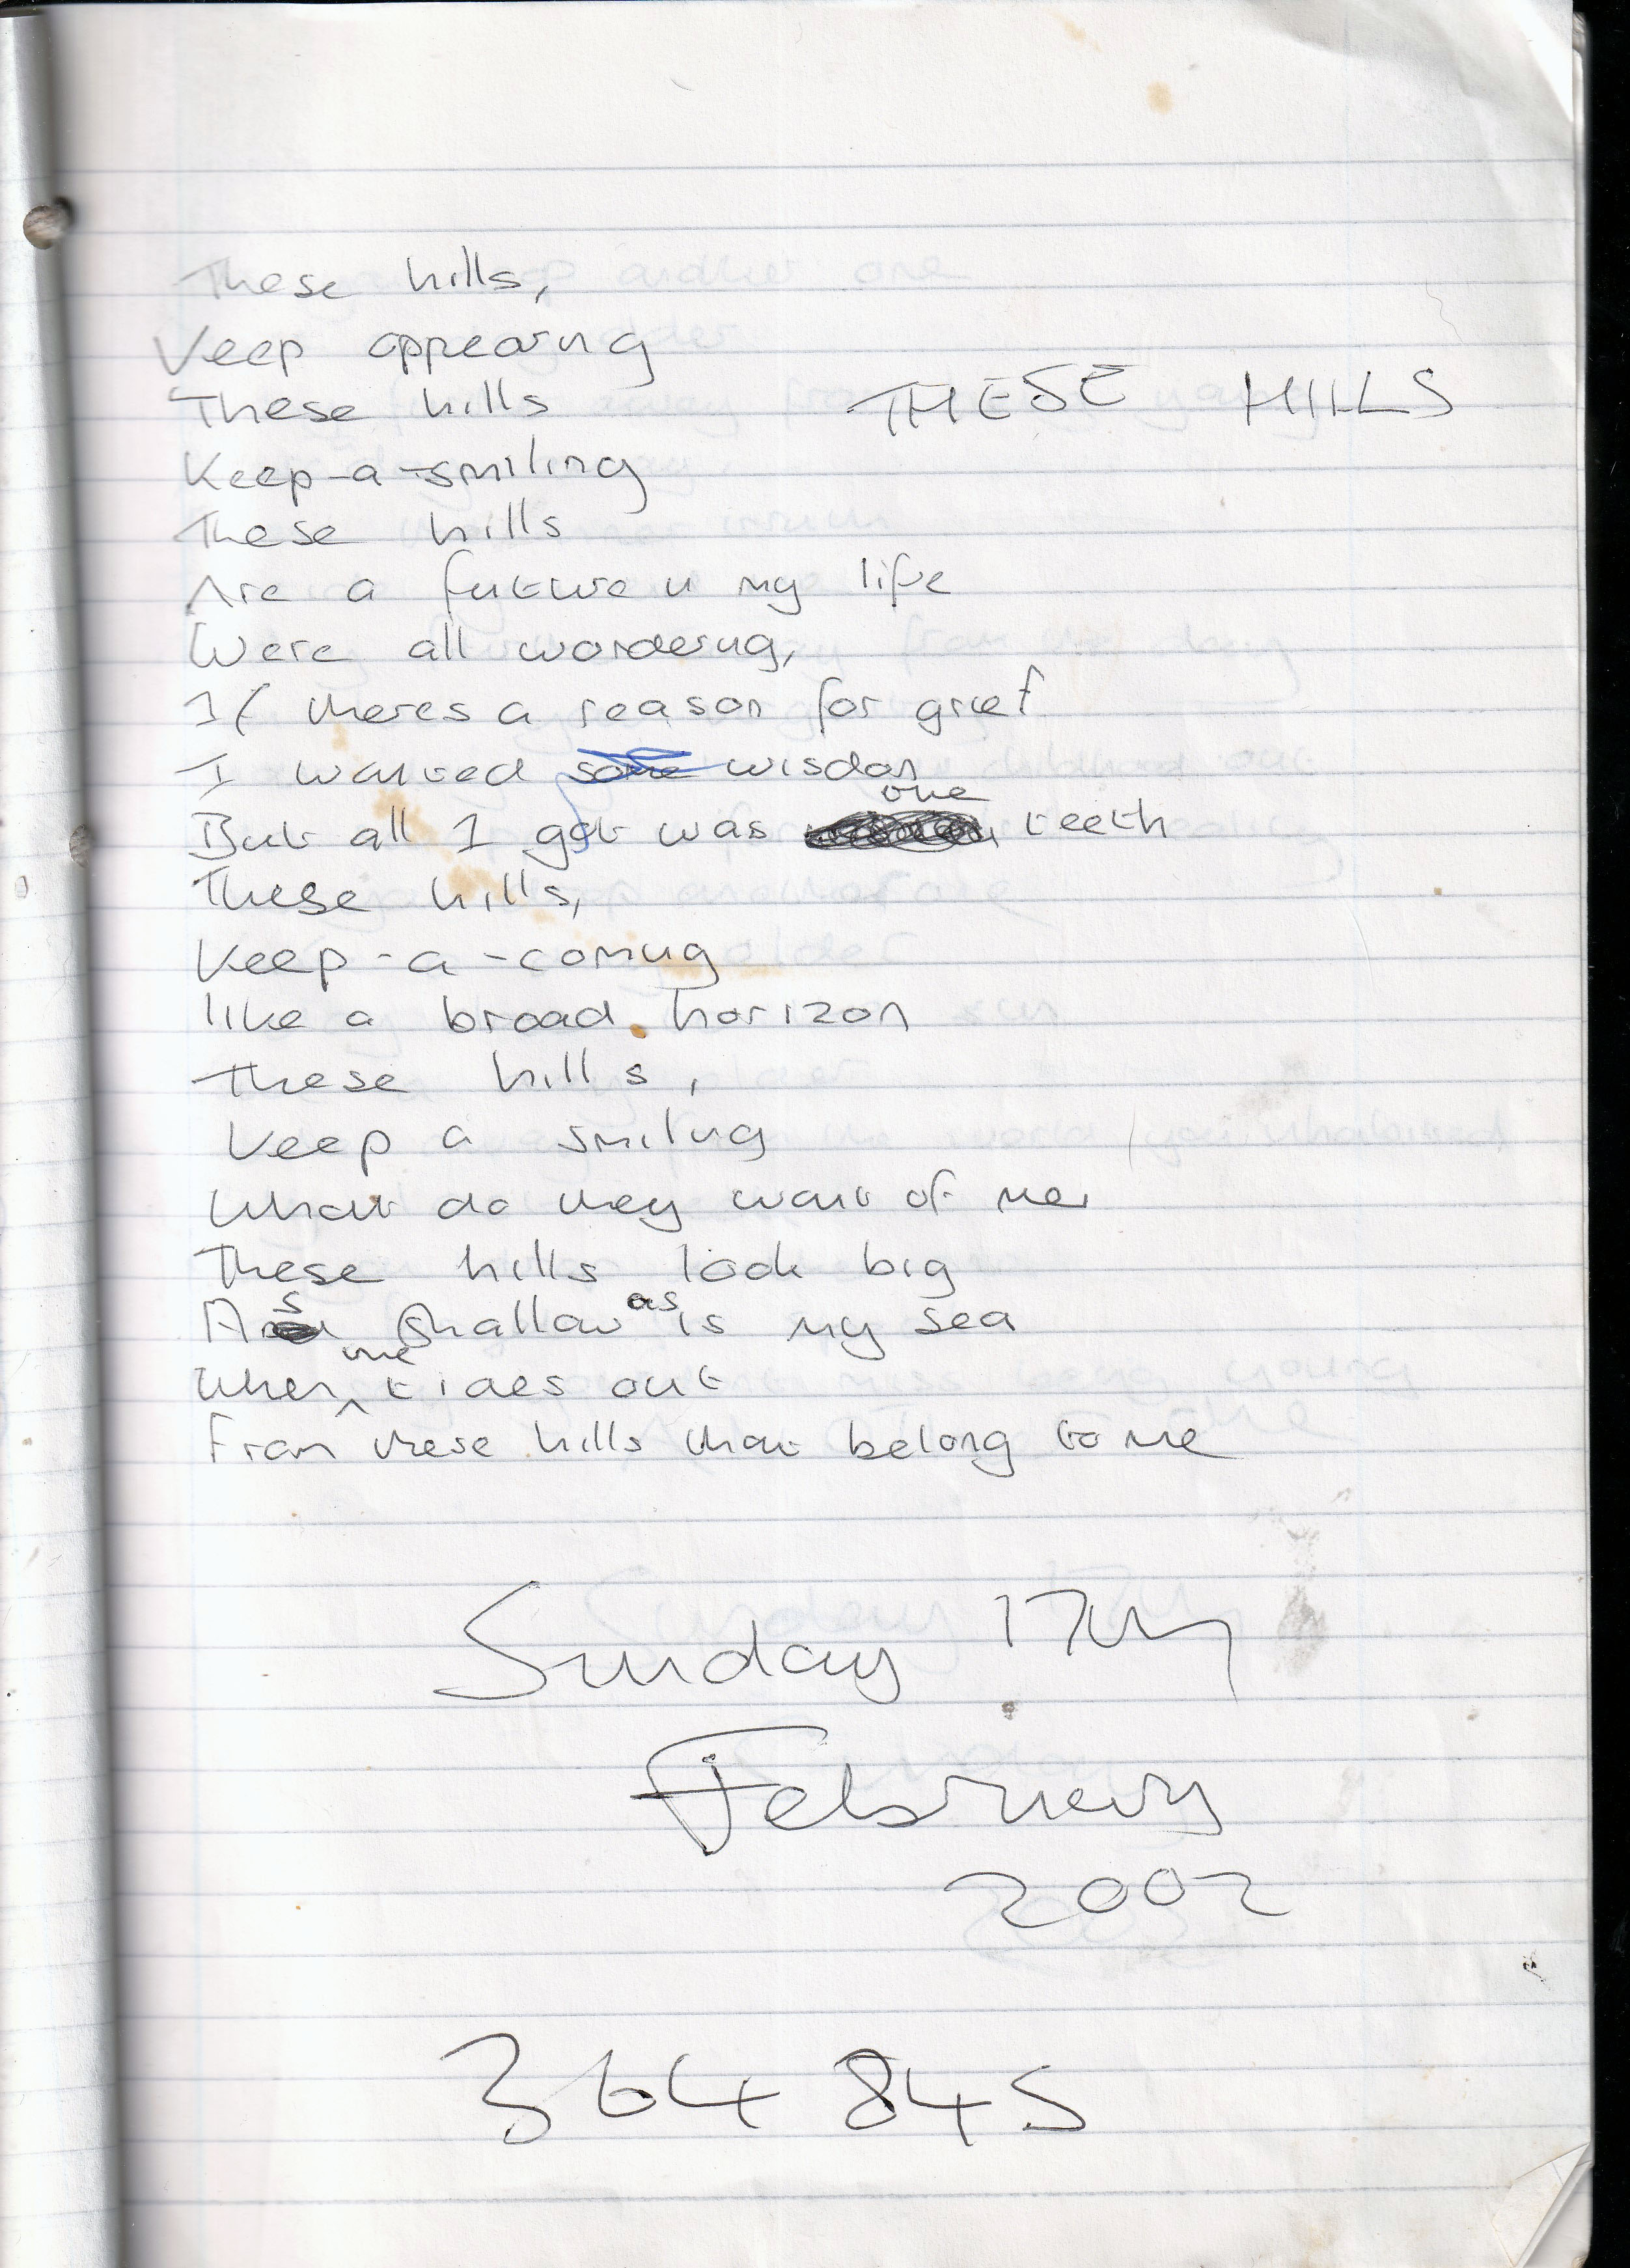 These hills,
Keep appearing
These hills
THESE HILLS
Keep-a-smiling
These hills
Are a future in my life
Were all wondering,
If theres a reason for grief
I wanted some wisdom
But all I got was one teeth
These hills,
Keep-a-coming
like a broad horizon
These hills,
Keep a smiling
What do they want of me
These hills look big
As shallow as is my sea
When the tides out
From these hills that belong to me
Sunday 17th,
February
2002
364 845